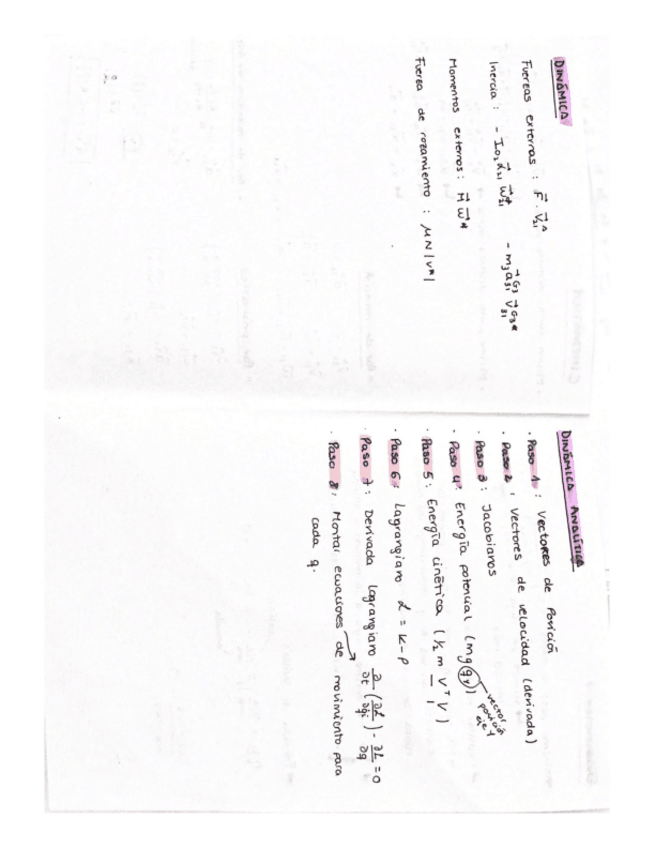 DINÁMICA
Fuerzas externas : F⃗ · V⃗₂₁ᴬ
Inercia : - I₀₂ α⃗₂₁ ω⃗₂₁* - m₃ a⃗₃₁ᴳ³ V⃗₃₁ᴳ³*
Momentos externos : M⃗ ω⃗*
Fuerza de rozamiento : μN|V*|
DINÁMICA ANALÍTICA
· Paso 1 : Vectores de Posición
· Paso 2 : Vectores de velocidad (derivada)
· Paso 3 : Jacobianos
· Paso 4 : Energía potencial (mg qy)
vector posición eje y
· Paso 5 : Energía cinética (½ m Vᵀ V)
· Paso 6 : Lagrangiano L = K - P
· Paso 7 : Derivada lagrangiano ∂/∂t (∂L/∂q̇i) - ∂L/∂q = 0
· Paso 8 : Montar ecuaciones de movimiento para
cada q.